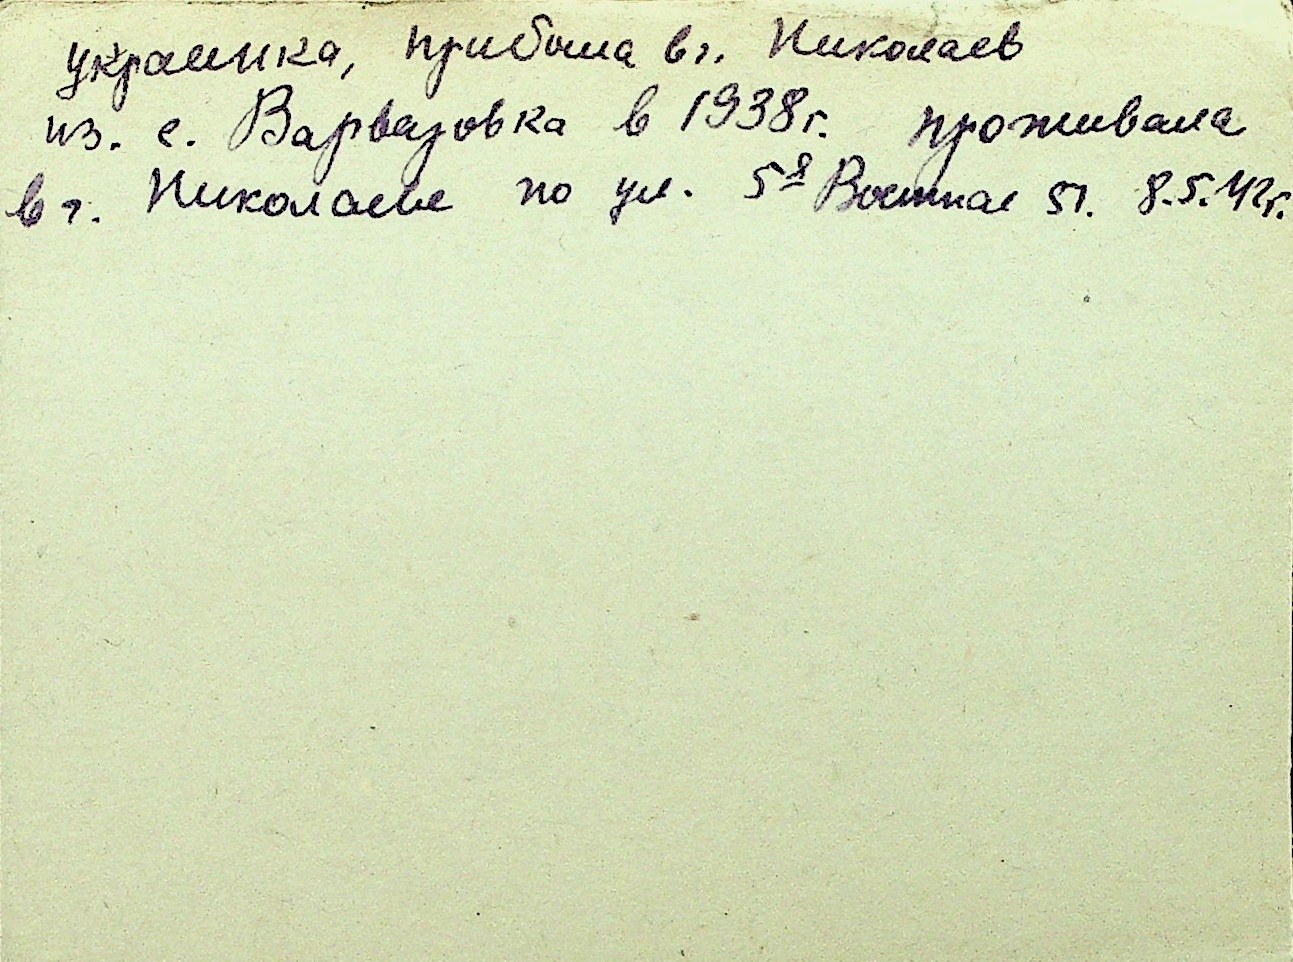 украинка, прибыла в г. Николаев
из. с. Варваровка в 1938 г. проживала
в г. Николаеве по ул. 5я Военная 51. 8.5.42 г.